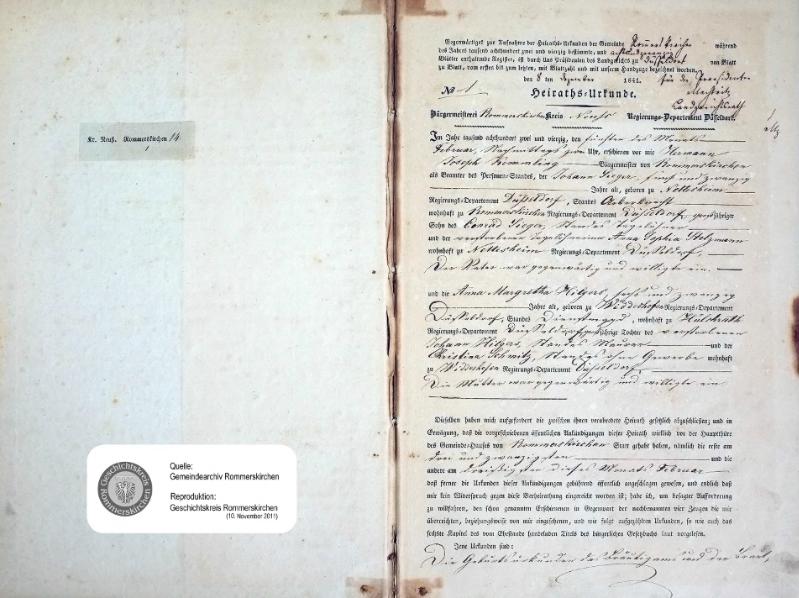 Kr. Neuß. Rommerskirchen 14
1
Quelle:
Gemeindearchiv Rommerskirchen
Reproduktion:
Geschichtskreis Rommerskirchen
(10. November 2011)
Geschichtskreis
Rommerskirchen
Gegenwärtiges zur Aufnahme der Heiraths-Urkunden der Gemeinde während
des Jahres tausend achthundert zwei und vierzig bestimmte, und
Blätter enthaltende Register, ist durch Uns Präsidenten des Landgerichts zu Düsseldorf von Blatt
zu Blatt, vom ersten bis zum letzten, mit Blattzahl und mit unserm Handzuge bezeichnet worden,
den 8 ten Dezember 1841. für den Präsidenten
Landgerichtsrath
No 1 Heiraths-Urkunde.
Bürgermeisterei Rommerskirchen Kreis Neuss Regierungs-Departement Düsseldorf.
Im Jahr tausend achthundert zwei und vierzig, den fünften des Monats
Februar, Nachmittags zwei Uhr, erschienen vor mir Hermann
Joseph Bürgermeister von Rommerskirchen
als Beamter des Personen-Standes, der Johann Sieger, fünf und zwanzig
Jahre alt, geboren zu Nettesheim
Regierungs-Departement Düsseldorf, Standes Ackerknecht
wohnhaft zu Rommerskirchen Regierungs-Departement Düsseldorf, großjähriger
Sohn des Conrad Sieger, Standes Tagelöhner
und der verstorbenen Tagelöhnerinn Anna Sophia Stelzmann
wohnhaft zu Nettesheim Regierungs-Departement Düsseldorf,
Der Vater war gegenwärtig und willigte ein.
und die Anna Margretha Hilgers, sechs und zwanzig
Jahre alt, geboren zu Widdeshofen Regierungs-Departement
Düsseldorf, Standes Dienstmagd, wohnhaft zu Hülchrath
Regierungs-Departement Düsseldorf, großjährige Tochter des verstorbenen
Johann Hilgers, Standes Maurer und der
Christina Schmitz, Standes ohne Gewerbe wohnhaft
zu Widdeshofen Regierungs-Departement Düsseldorf,
Die Mutter war gegenwärtig und willigte ein
Dieselben haben mich aufgefordert die zwischen ihnen verabredete Heirath gesetzlich abzuschließen; und in
Erwägung, daß die vorgeschriebenen öffentlichen Ankündigungen dieser Heirath wirklich vor der Hauptthüre
des Gemeinde-Hauses von Rommerskirchen Statt gehabt haben, nämlich die erste am
drei und zwanzigsten und die
andere am dreißigsten dieses Monats Februar
daß ferner die Urkunden dieser Ankündigungen gebührend öffentlich angeschlagen gewesen, und endlich daß
mir kein Widerspruch gegen diese Verheirathung eingereicht worden ist; habe ich, um besagter Aufforderung
zu willfahren, den schon genannten Erschienenen in Gegenwart der nachbenannten vier Zeugen die mir
überreichten, beziehungsweise von mir eingesehenen, und wie folgt aufgezählten Urkunden, so wie auch das
sechste Kapitel des vom Ehestande handelnden Titels des bürgerlichen Gesetzbuchs laut vorgelesen.
Jene Urkunden sind:
Die Geburtsurkunden des Bräutigams und der Braut,